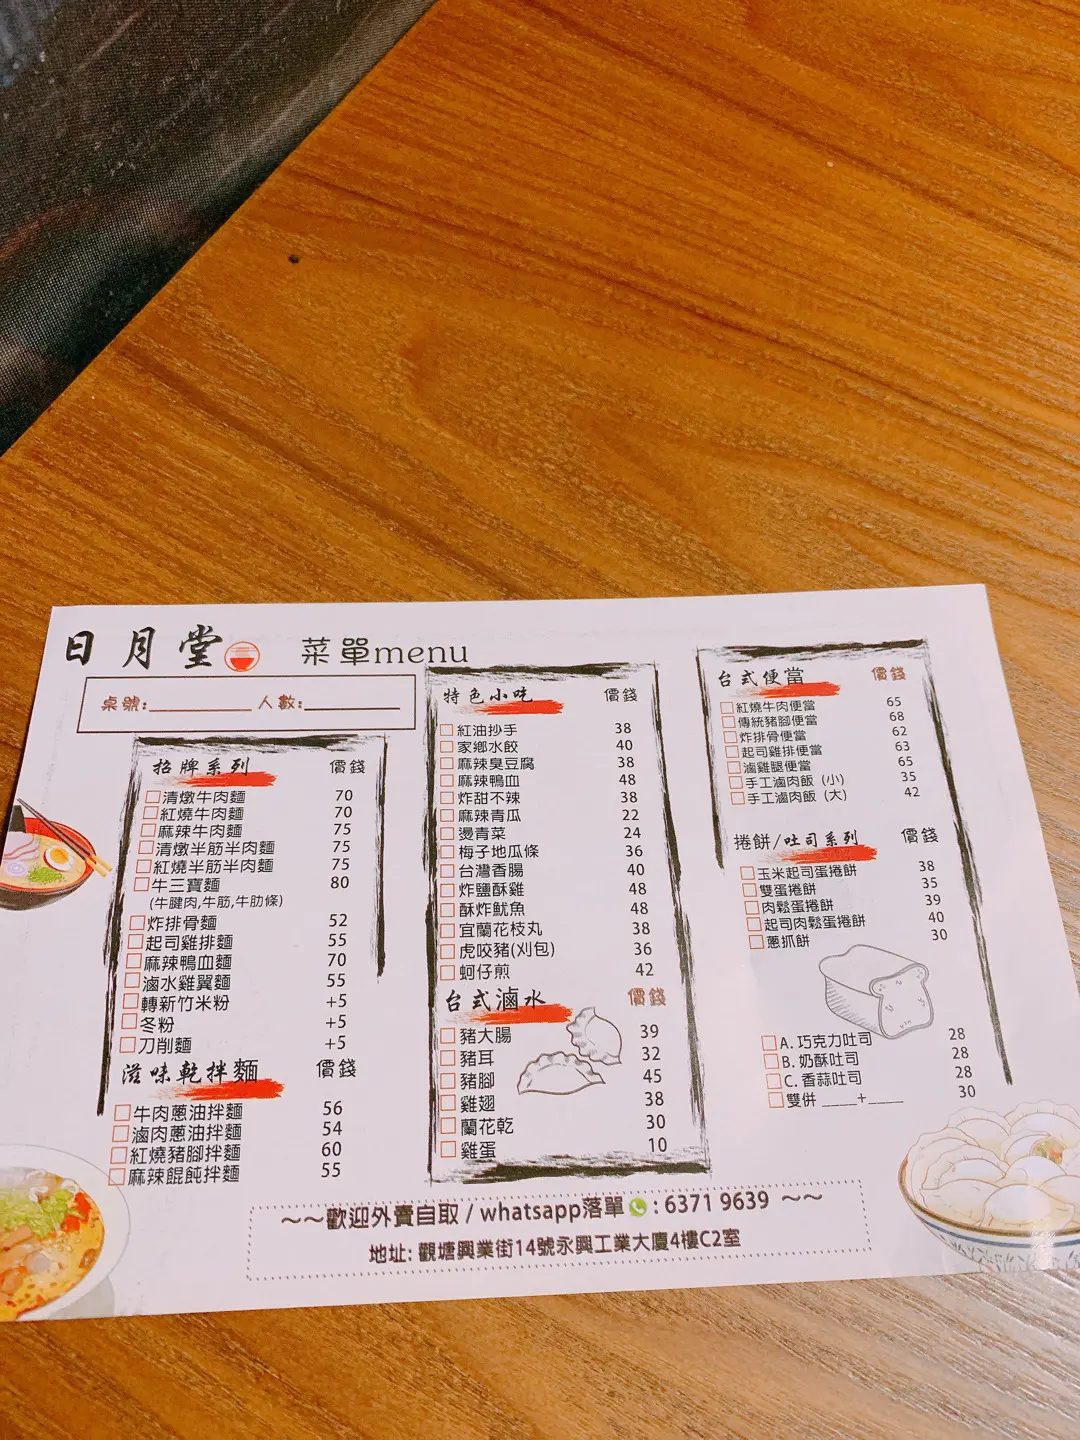 日月堂 菜單menu
桌號:__________ 人數:__________
招牌系列 價錢
清燉牛肉麵 70
紅燒牛肉麵 70
麻辣牛肉麵 75
清燉半筋半肉麵 75
紅燒半筋半肉麵 75
牛三寶麵 80
(牛腱肉,牛筋,牛肋條)
炸排骨麵 52
起司雞排麵 55
麻辣鴨血麵 70
滷水雞翼麵 55
轉新竹米粉 +5
冬粉 +5
刀削麵 +5
滋味乾拌麵 價錢
牛肉蔥油拌麵 56
滷肉蔥油拌麵 54
紅燒豬腳拌麵 60
麻辣餛飩拌麵 55
特色小吃 價錢
紅油抄手 38
家鄉水餃 40
麻辣臭豆腐 38
麻辣鴨血 48
炸甜不辣 38
麻辣青瓜 22
燙青菜 24
梅子地瓜條 36
台灣香腸 40
炸鹽酥雞 48
酥炸魷魚 48
宜蘭花枝丸 38
虎咬豬(刈包) 36
蚵仔煎 42
台式滷水 價錢
豬大腸 39
豬耳 32
豬腳 45
雞翅 38
蘭花乾 30
雞蛋 10
台式便當 價錢
紅燒牛肉便當 65
傳統豬腳便當 68
炸排骨便當 62
起司雞排便當 63
滷雞腿便當 65
手工滷肉飯 (小) 35
手工滷肉飯 (大) 42
捲餅/吐司系列 價錢
玉米起司蛋捲餅 38
雙蛋捲餅 35
肉鬆蛋捲餅 39
起司肉鬆蛋捲餅 40
蔥抓餅 30
A. 巧克力吐司 28
B. 奶酥吐司 28
C. 香蒜吐司 28
雙併 ____+____ 30
～～歡迎外賣自取 / whatsapp落單 : 6371 9639 ～～
地址: 觀塘興業街14號永興工業大廈4樓C2室